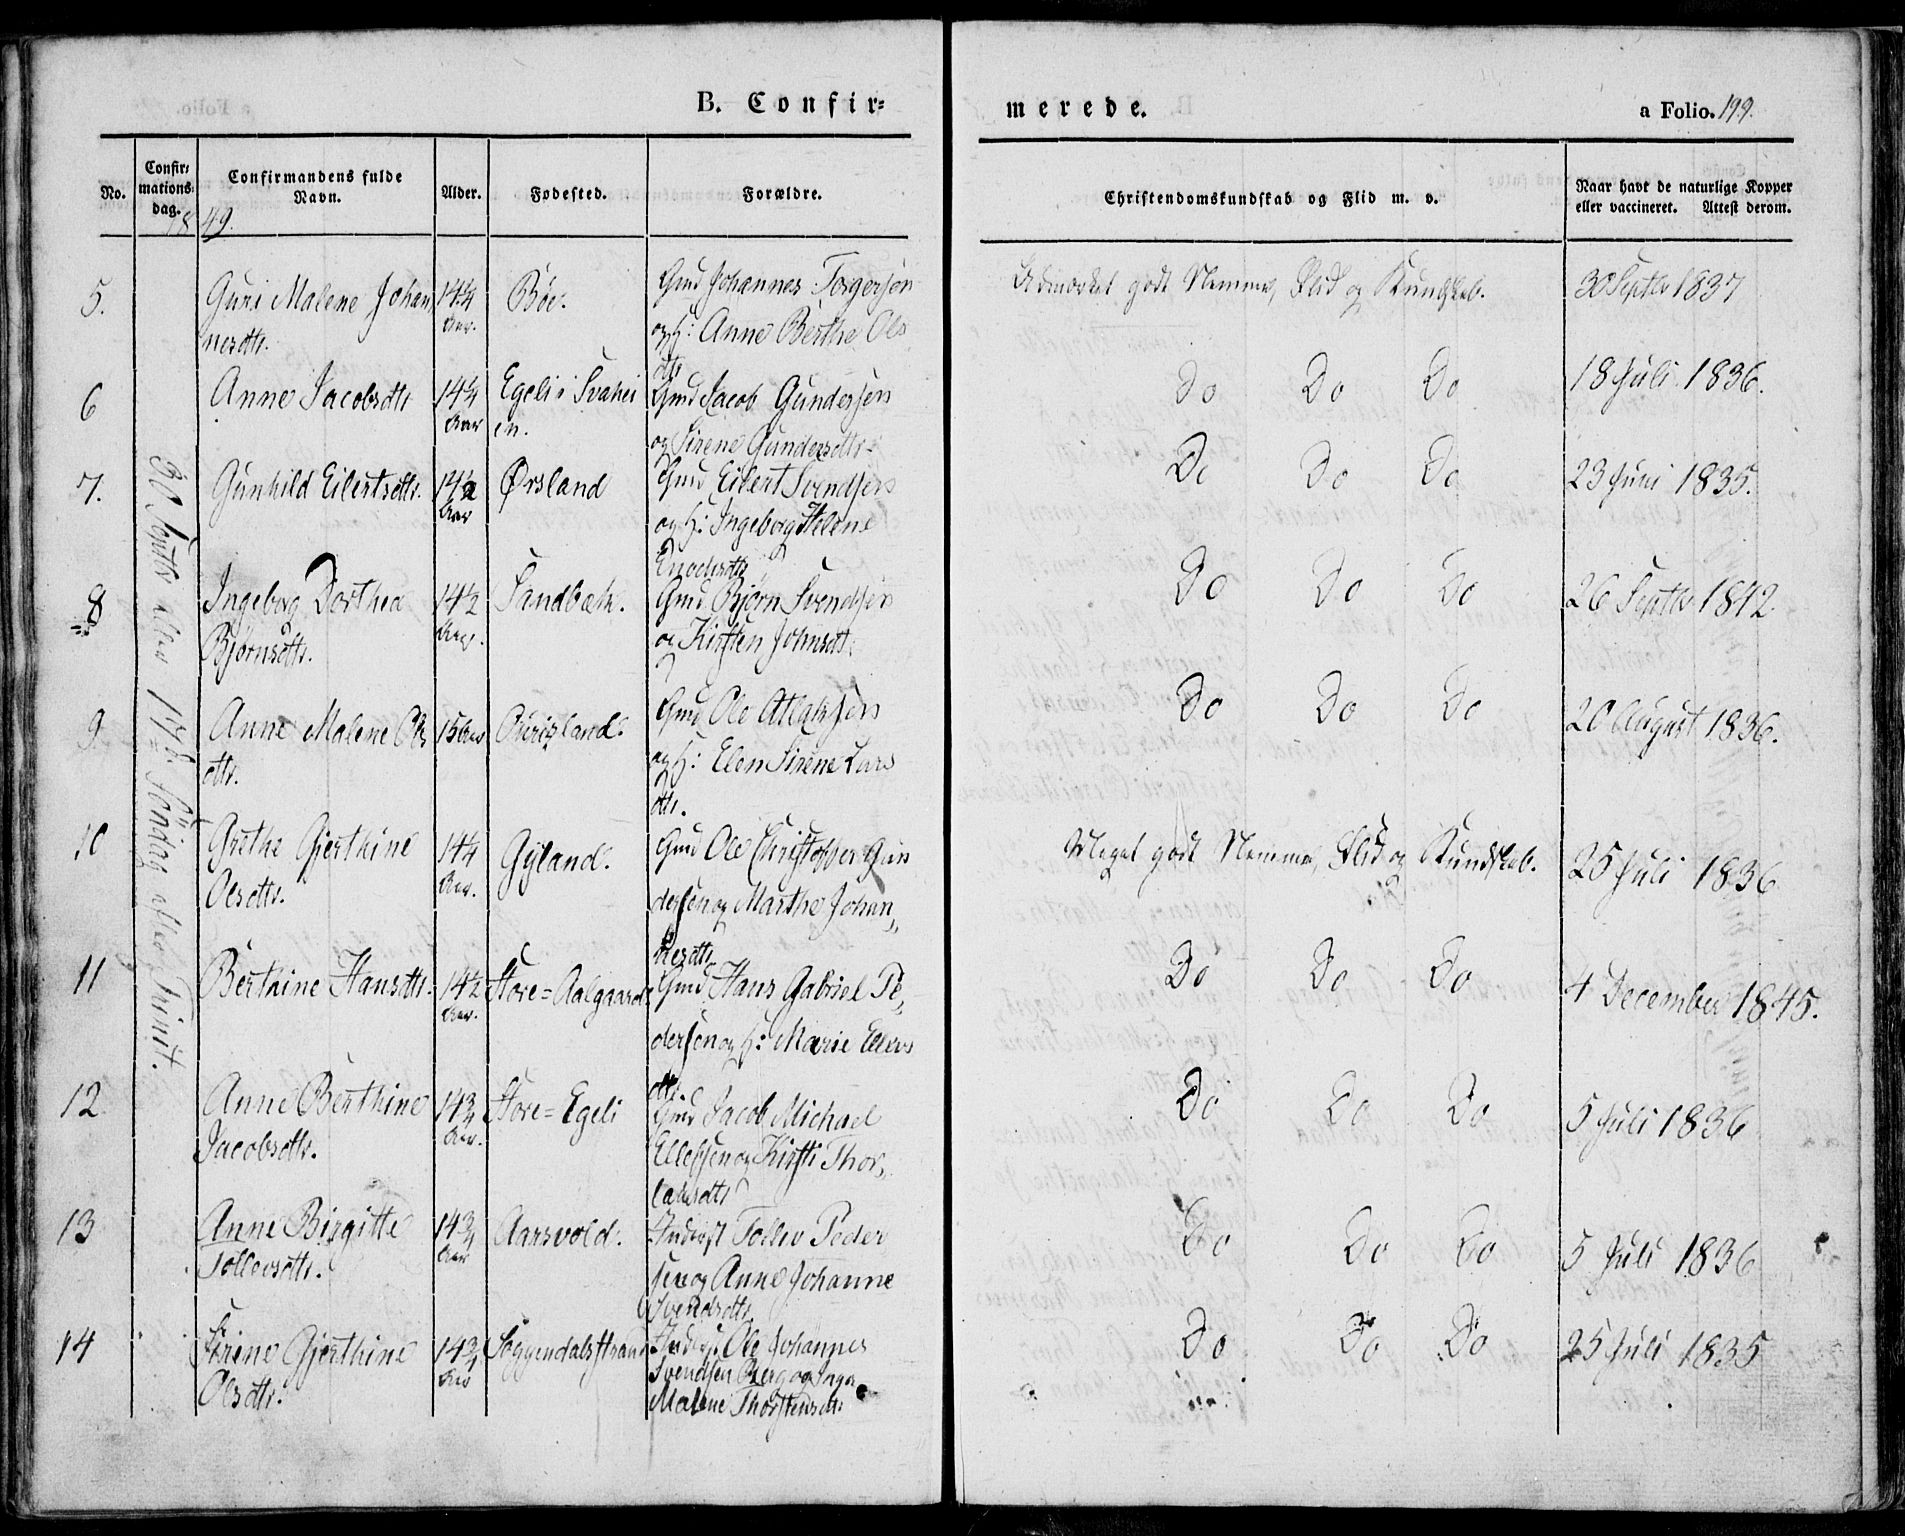 B. Confir=
merede.
a Folio. 199.
No.
Confir=
mations=
dag.
Confirmandens fulde
Navn.
Alder.
Fødested.
Forældre.
Christendomskundskab og Flid m. v.
Naar havt de naturlige Kopper
eller vaccineret. Attest derom.
1849.
30 Septbr eller 17de Söndag efter Trinit.
5.
Guri Malene Johan
nesdtr.
14¼
Aar.
Böe.
Gmd Johannes Torgersen
og H: Anne Berthe Ols
dtr
Udmærket godt Nemme, Flid og Kundskab.
30 Septbr 1837
6
Anne Jacobsdtr
14¼
Aar
Egeli i Svahei
en.
Gmd Jacob Gundersen
og Sirene Gundersdtr.
Do Do Do
18 Juli 1836.
7.
Gunhild Eilertsdtr.
14½
Aar
Ørsland
Gmd Eilert Svendsen
og H: Ingeborg Helene
Enochsdtr
Do Do Do
23 Juni 1835.
8
Ingeborg Dorthea
Bjørnsdtr.
14½
Aar.
Sandbæk.
Gmd Bjørn Svendsen
og Kirsten Johnsdtr.
Do Do Do
26 Septbr 1842.
9
Anne Malene Ols
dtr.
15 Aar
Gmd Ole Atlaksen
og H: Elen Sirene Lars
dtr.
Do Do Do
20 August 1836.
10
Grethe Gjerthine
Olsdtr.
14¼
Aar.
Gyland.
Gmd Ole Christopher Gun
dersen og Marthe Johan,,
nesdtr
Meget godt Nemme, Flid og Kundskab.
25 Juli 1836
11
Berthine Hansdtr.
14½
Aar.
Store=Aalgaard.
Gmd Hans Gabriel Pe,,
dersen og H: Marie Ellevs
dtr.
Do Do Do
4 December 1845.
12
Anne Berthine
Jacobsdtr.
14¾
Aar.
Store=Egeli
Gmd Jacob Michael
Ellefsen og Kirsti Thor,,
laksdtr
Do Do Do
5 Juli 1836
13
Anne Birgitte
Tollevsdtr.
14¾
Aar
Aarsvold.
Inderst Tollev Peder
sen og Anne Johanne
Svendsdtr
Do Do Do
5 Juli 1836
14
Sirine Gjerthine
Olsdtr.
14¾
Aar
Soggendalsstrand
Inderst Ole Johannes
Svendsen Berg og Inger
Malene Thorstensdtr
Do Do Do
25 Juli 1835